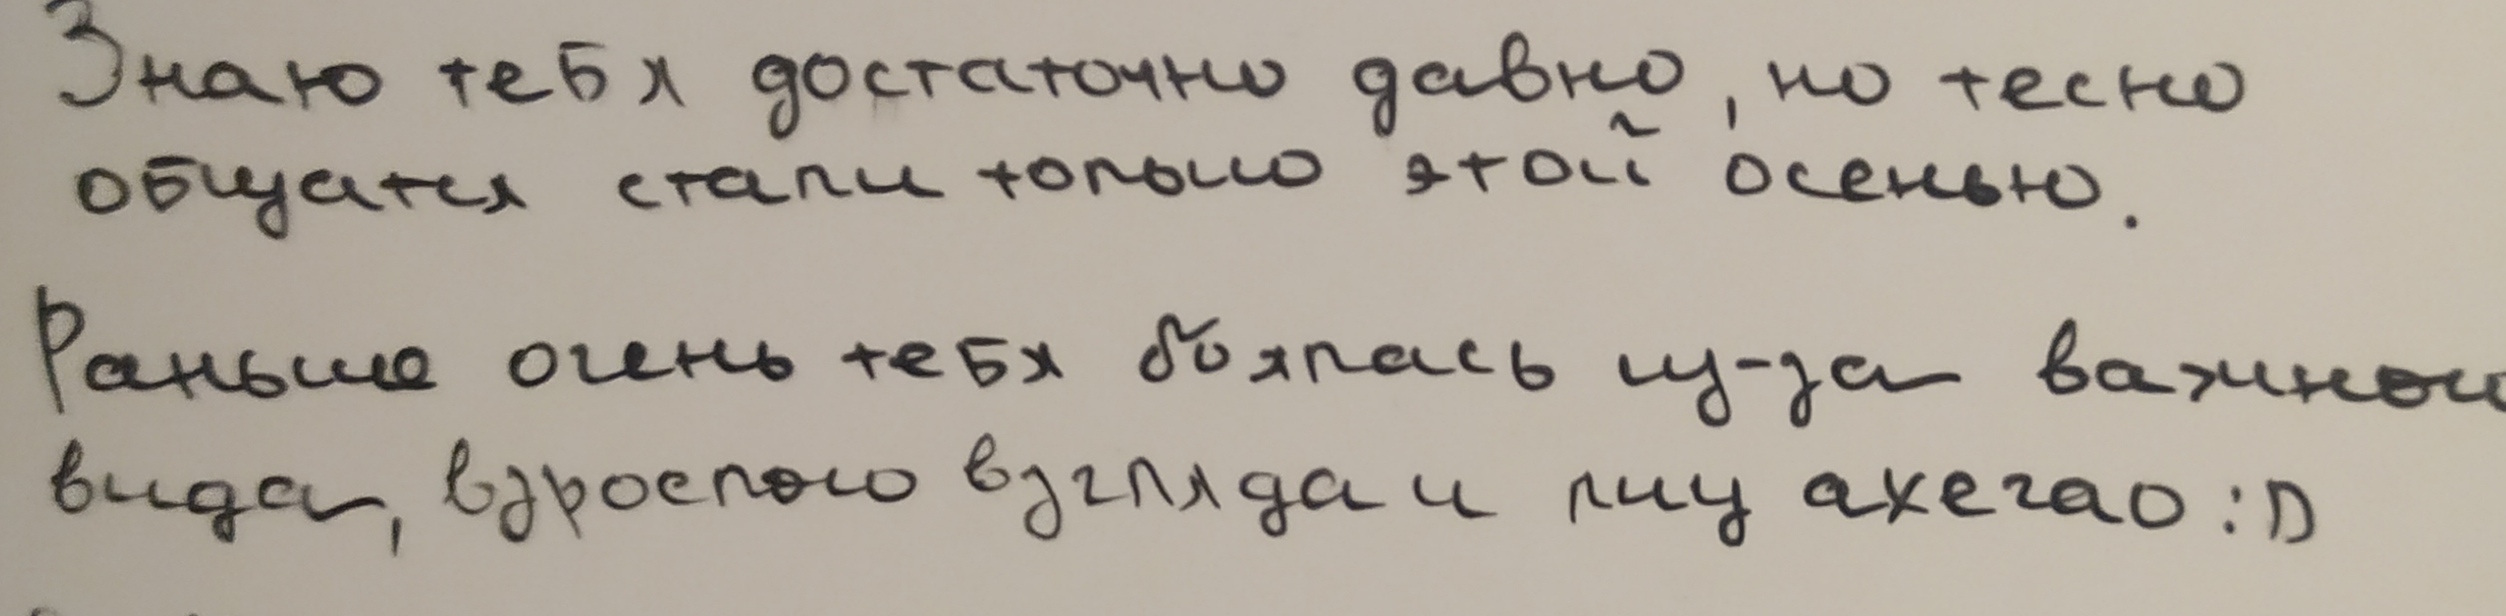 Знаю тебя достаточно давно, но тесно
общатся стали только этой осенью.
Раньше очень тебя боялась из-за важного
вида, взрослого взгляда и лиц ахегао :D